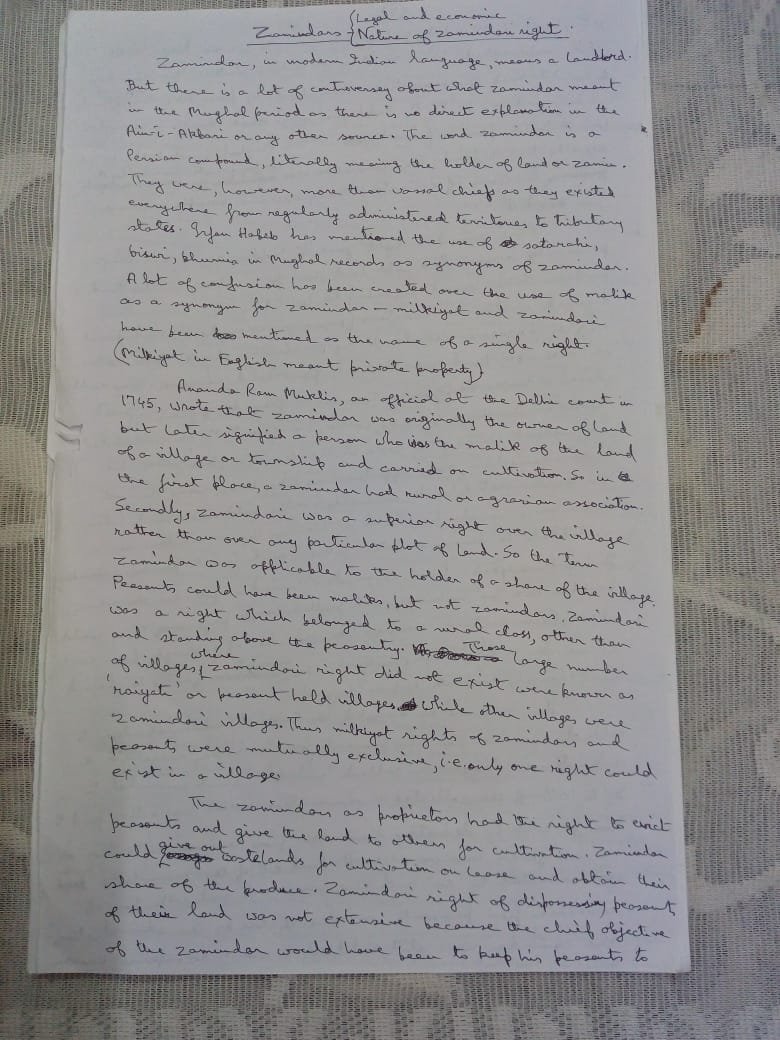 Zamindars { Legal and economic
Nature of zamindari right.
Zamindar, in modern Indian language, means a landlord.
But there is a lot of controversy about what zamindar meant
in the Mughal period as there is no direct explanation in the
Ain-i-Akbari or any other source. The word zamindar is a
Persian compound, literally meaning the holder of land or zamin.
They were, however, more than vassal chiefs as they existed
everywhere from regularly administered territories to tributary
states. Irfan Habib has mentioned the use of satarahi,
biswi, bhumia in Mughal records as synonyms of zamindar.
A lot of confusion has been created over the use of malik
as a synonym for zamindar - milkiyat and zamindari
have been mentioned as the name of a single right.
(Milkiyat in English meant private property)
Ananda Ram Muklis, an official at the Delhi court in
1745, wrote that zamindar was originally the owner of land
but later signified a person who was the malik of the land
of a village or township and carried on cultivation. So in
the first place, a zamindar had rural or agrarian association.
Secondly, zamindari was a superior right over the village
rather than over any particular plot of land. So the term
zamindar was applicable to the holder of a share of the village.
Peasants could have been maliks, but not zamindars. Zamindari
was a right which belonged to a rural class, other than
and standing above the peasantry. Those large number
of villages where zamindari right did not exist were known as
'raiyati' or peasant held villages while other villages were
zamindari villages. Thus milkiyat rights of zamindars and
peasants were mutually exclusive, i.e. only one right could
exist in a village.
The zamindars as proprietors had the right to evict
peasants and give the land to others for cultivation. Zamindar
could give out wastelands for cultivation on lease and obtain their
share of the produce. Zamindari right of dispossessing peasants
of their land was not extensive because the chief objective
of the zamindar would have been to keep his peasants to